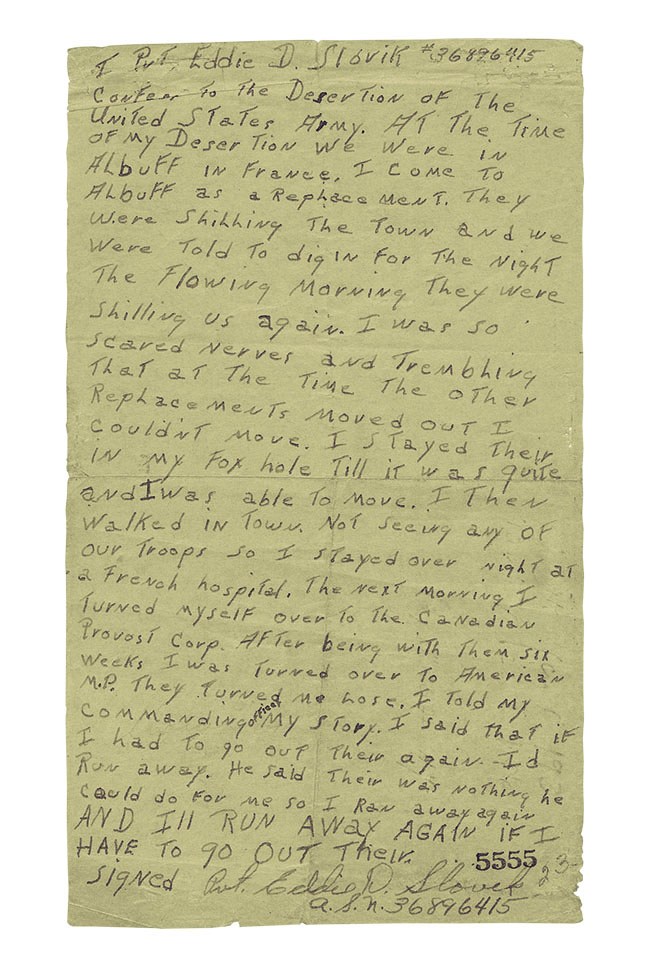 I Pvt. Eddie D. Slovik #36896415
Confess to the Desertion of the
United States Army. At the time
of my Desertion we were in
Albuff in France. I come to
Albuff as a Replacement. They
were shilling the town and we
were told to dig in for the night
The flowing morning they were
shilling us again. I was so
scared nerves and trembling
that at the time the other
Replacements moved out I
couldn't move. I stayed their
in my fox hole till it was quite
and I was able to move. I then
walked in town. Not seeing any of
our troops so I stayed over night at
a French hospital. The next morning I
turned myself over to the Canadian
Provost Corp. After being with them six
weeks I was turned over to American
M.P. They turned me lose. I told my
commanding officer my story. I said that if
I had to go out their again Id
Run away. He said their was nothing he
could do for me so I Ran away again
AND ILL RUN AWAY AGAIN IF I
HAVE TO GO OUT Their.
5555
23
signed Pvt. Eddie D. Slovik
A.S.N. 36896415